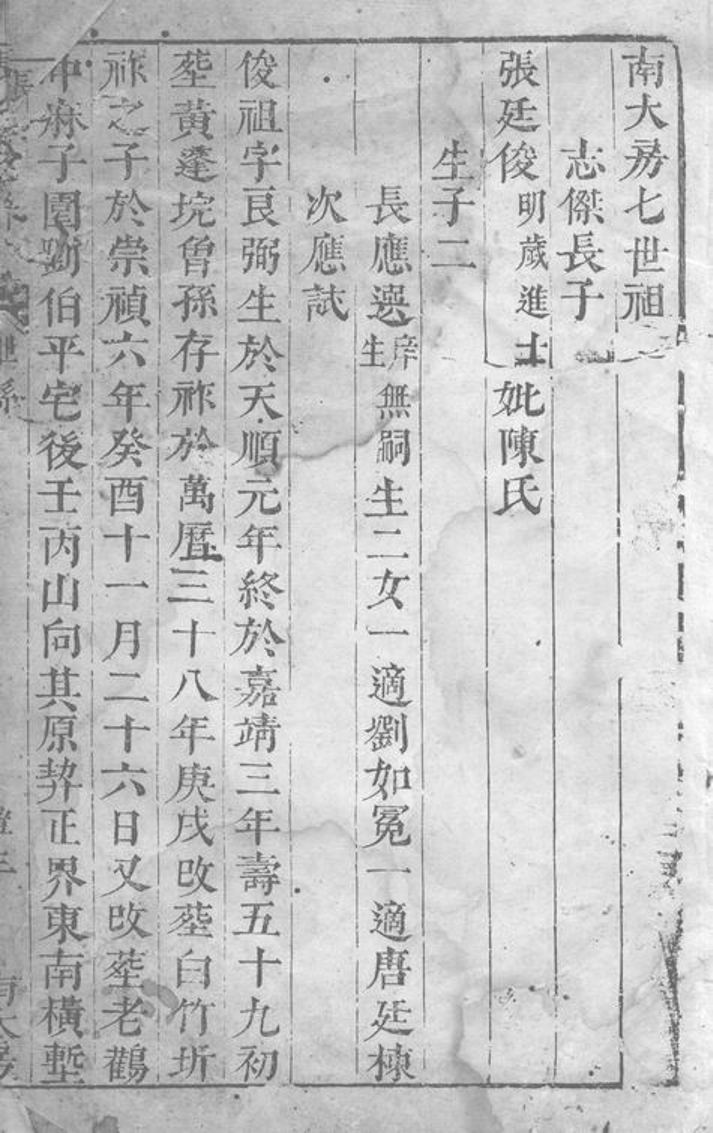 南大房七世祖
志傑長子
張廷俊明歲進士妣陳氏
生子二
長應選庠生無嗣生二女一適劉如冕一適唐廷棟
次應試
俊祖字良弼生於天順元年終於嘉靖三年壽五十九初
塟黄蓬垸曾孫存祚於萬曆三十八年庚戌改塟白竹圻
祚之子於崇禎六年癸酉十一月二十六日又改塟老鸛
中麻子園劉伯平宅後壬丙山向其原契正界東南横塹